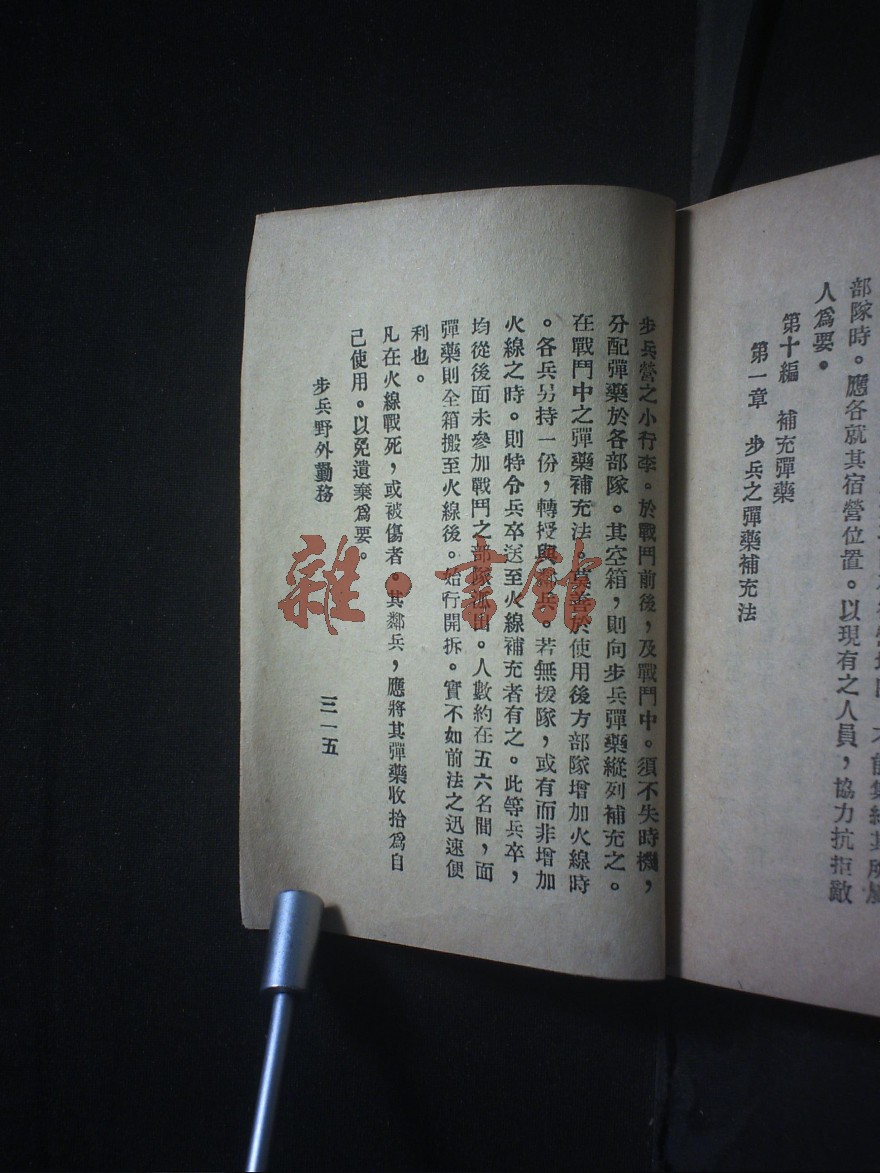 部隊時。應各就其宿營位置。以現有之人員，協力抗拒敵
人爲要。
第十編　補充彈藥
第一章　步兵之彈藥補充法
步兵營之小行李。於戰鬥前後，及戰鬥中。須不失時機，
分配彈藥於各部隊。其空箱，則向步兵彈藥縱列補充之。
在戰鬥中之彈藥補充法。莫善於使用後方部隊增加火線時
。各兵另持一份，轉授與鄰兵。若無援隊，或有而非增加
火線之時。則特令兵卒送至火線補充者有之。此等兵卒，
均從後面未參加戰鬥之部隊派出。人數約在五六名間，面
彈藥則全箱搬至火線後。始行開拆。實不如前法之迅速便
利也。
凡在火線戰死，或被傷者。其鄰兵，應將其彈藥收拾爲自
己使用。以免遺棄爲要。
步兵野外勤務
三一五
雜·書館